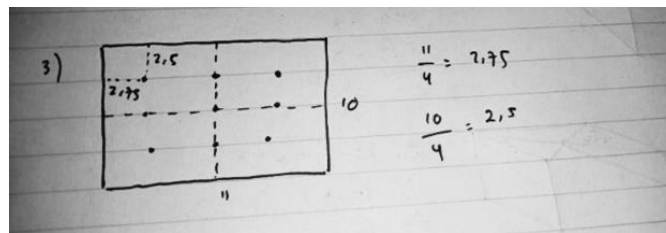 3)
2,5
2,75
10
11
11/4 = 2,75
10/4 = 2,5